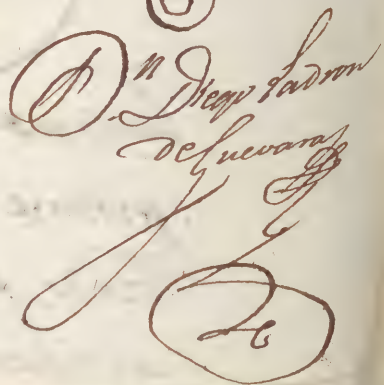 Dn Diego Ladron
de Guevara